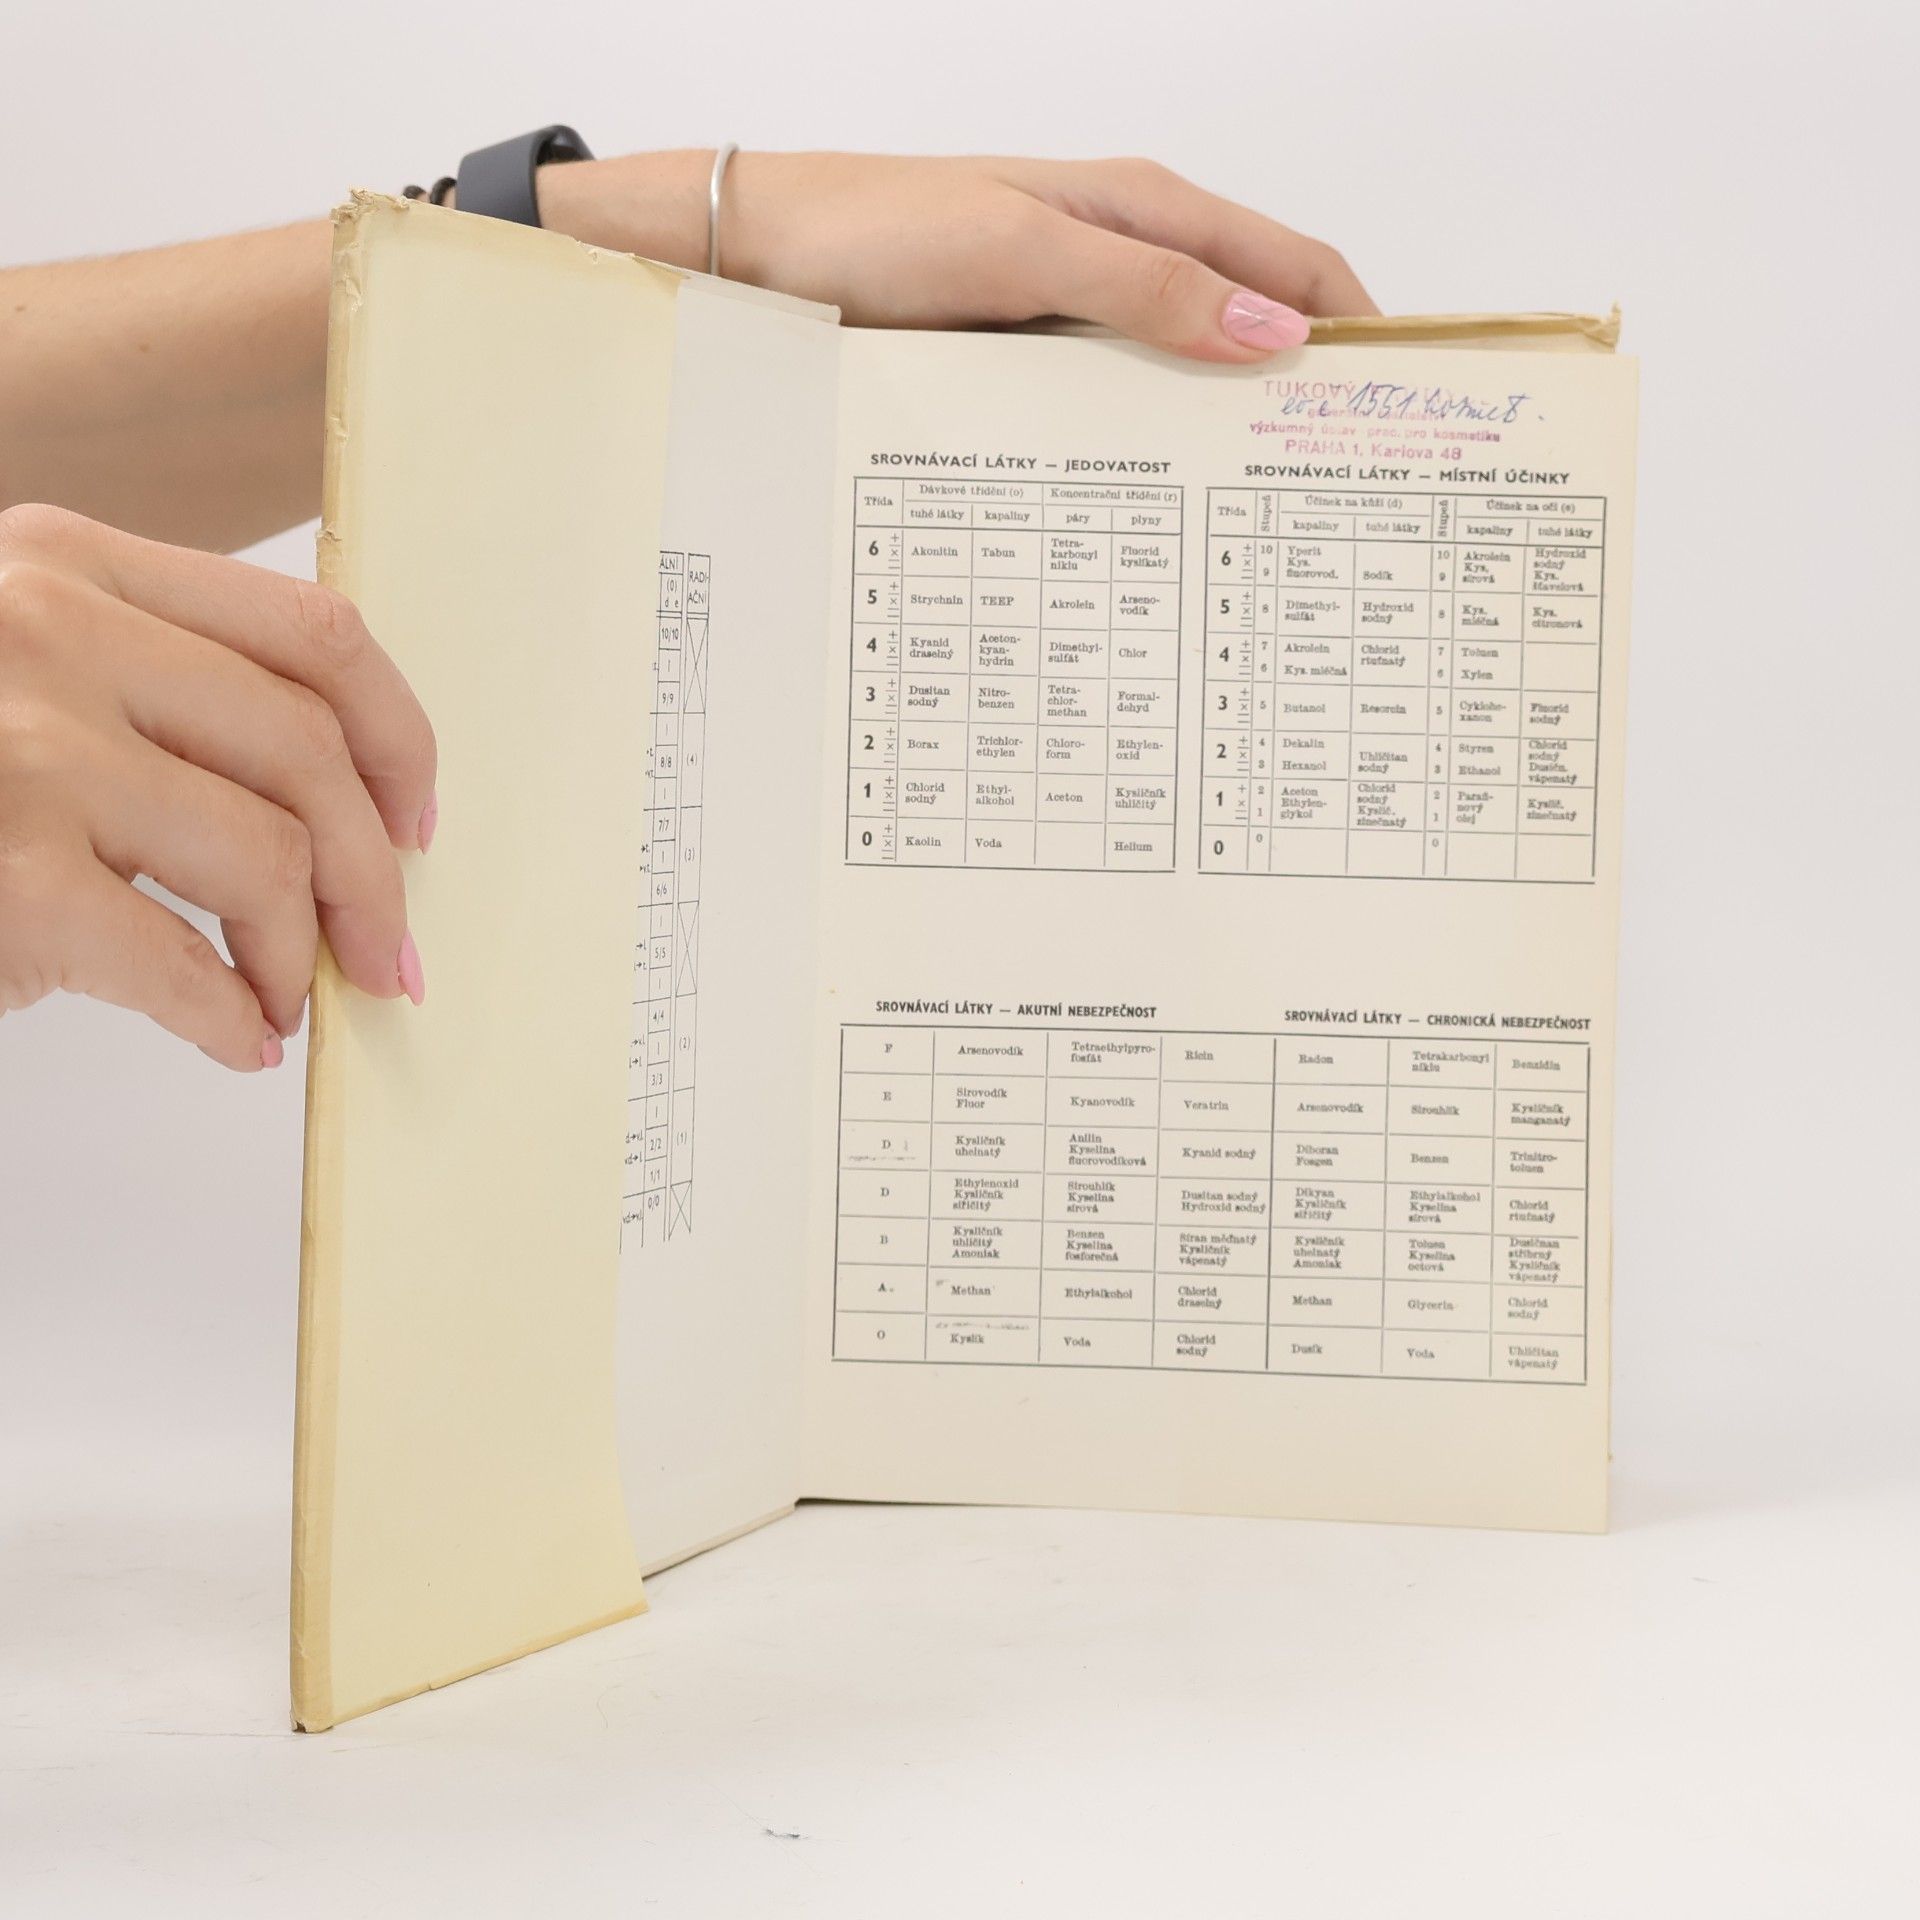 ÁLNÍ
RADI-
AČNÍ
(0)
d e
10/10
9/9
8/8
(4)
7/7
(3)
6/6
5/5
4/4
(2)
3/3
2/2
(1)
1/1
0/0
TUKOVÝ
1551
výzkumný ústav prac. pro kosmetiku
PRAHA 1, Karlova 48
SROVNÁVACÍ LÁTKY — JEDOVATOST
Třída Dávkové třídění (o) Koncentrační třídění (r)
tuhé látky kapaliny páry plyny
6 + × — Akonitin Tabun Tetra-karbonyl niklu Fluorid kyslíkatý
5 + × — Strychnin TEEP Akrolein Arseno-vodík
4 + × — Kyanid draselný Aceton-kyan-hydrin Dimethyl-sulfát Chlor
3 + × — Dusitan sodný Nitro-benzen Tetra-chlor-methan Formal-dehyd
2 + × — Borax Trichlor-ethylen Chloro-form Ethylen-oxid
1 + × — Chlorid sodný Ethyl-alkohol Aceton Kysličník uhličitý
0 + × — Kaolin Voda Helium
SROVNÁVACÍ LÁTKY — MÍSTNÍ ÚČINKY
Třída Stupeň Účinek na kůži (d) Stupeň Účinek na oči (e)
kapaliny tuhé látky kapaliny tuhé látky
6 + × — 10 9 Yperit Kys. fluorovod. Sodík 10 9 Akrolein Kys. sírová Hydroxid sodný Kys. šťavelová
5 + × — 8 Dimethyl-sulfát Hydroxid sodný 8 Kys. mléčná Kys. citronová
4 + × — 7 6 Akrolein Kys. mléčná Chlorid rtuťnatý 7 6 Toluen Xylen
3 + × — 5 Butanol Resorcin 5 Cyklohe-xanon Fluorid sodný
2 + × — 4 3 Dekalin Hexanol Uhličitan sodný 4 3 Styren Ethanol Chlorid sodný Dusičn. vápenatý
1 + × — 2 1 Aceton Ethylen-glykol Chlorid sodný Kyslič. zinečnatý 2 1 Parafi-nový olej Kyslič. zinečnatý
0 0 0
SROVNÁVACÍ LÁTKY — AKUTNÍ NEBEZPEČNOST SROVNÁVACÍ LÁTKY — CHRONICKÁ NEBEZPEČNOST
F Arsenovodík Tetraethylpyro-fosfát Ricin Radon Tetrakarbonyl niklu Benzidin
E Sirovodík Fluor Kyanovodík Veratrin Arsenovodík Sirouhlík Kysličník manganatý
D Kysličník uhelnatý Anilin Kyselina fluorovodíková Kyanid sodný Diboran Fosgen Benzen Trinitro-toluen
D Ethylenoxid Kysličník siřičitý Sirouhlík Kyselina sírová Dusitan sodný Hydroxid sodný Dikyan Kysličník siřičitý Ethylalkohol Kyselina sírová Chlorid rtuťnatý
B Kysličník uhličitý Amoniak Benzen Kyselina fosforečná Síran měďnatý Kysličník vápenatý Kysličník uhelnatý Amoniak Toluen Kyselina octová Dusičnan stříbrný Kysličník vápenatý
A Methan Ethylalkohol Chlorid draselný Methan Glycerin Chlorid sodný
O Kyslík Voda Chlorid sodný Dusík Voda Uhličitan vápenatý